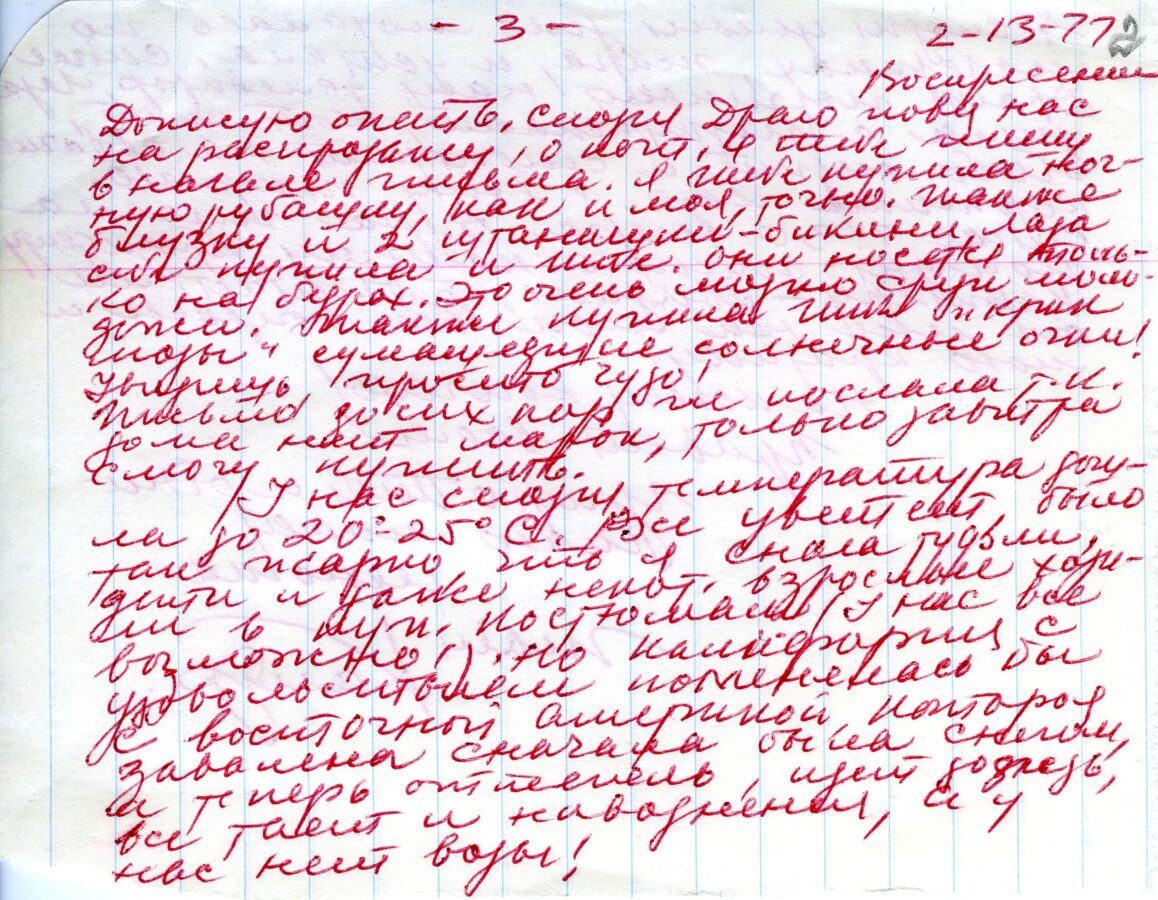 - 3 -
2-13-77 2
Воскресение
Дописую опять. Сегодня Драго повез нас
на распродажу, о кот. я тебе пишу
в начале письма. Я тебе купила ноч-
ную рубашку, как и моя, точно. Также
блузку и 2 штанишки-бикини, Лаза
себе купила и тебе. Они носятся толь-
ко на бедрах. Это очень модно среди моло-
дежи. Также купила тебе "крик
моды" сумасшедшие солнечные очки!
Увидишь, просто чудо!
Письмо до сих пор не послала т.к.
дома нет марок, только завтра
смогу купить.
У нас сегодня температура дошу-
ла до 20°-25° С. Все цветет, было
так жарко что я сняла туфли,
дети и даже некот. взрослые ходи-
ли в куп. костюмах (У нас все
возможно!). Но Калифорния с
удовольствием поменялась бы
с восточной америкой, которая
завалена сначала была снегом,
а теперь оттепель, идет дождь,
все тает и наводнения, а у
нас нет воды!